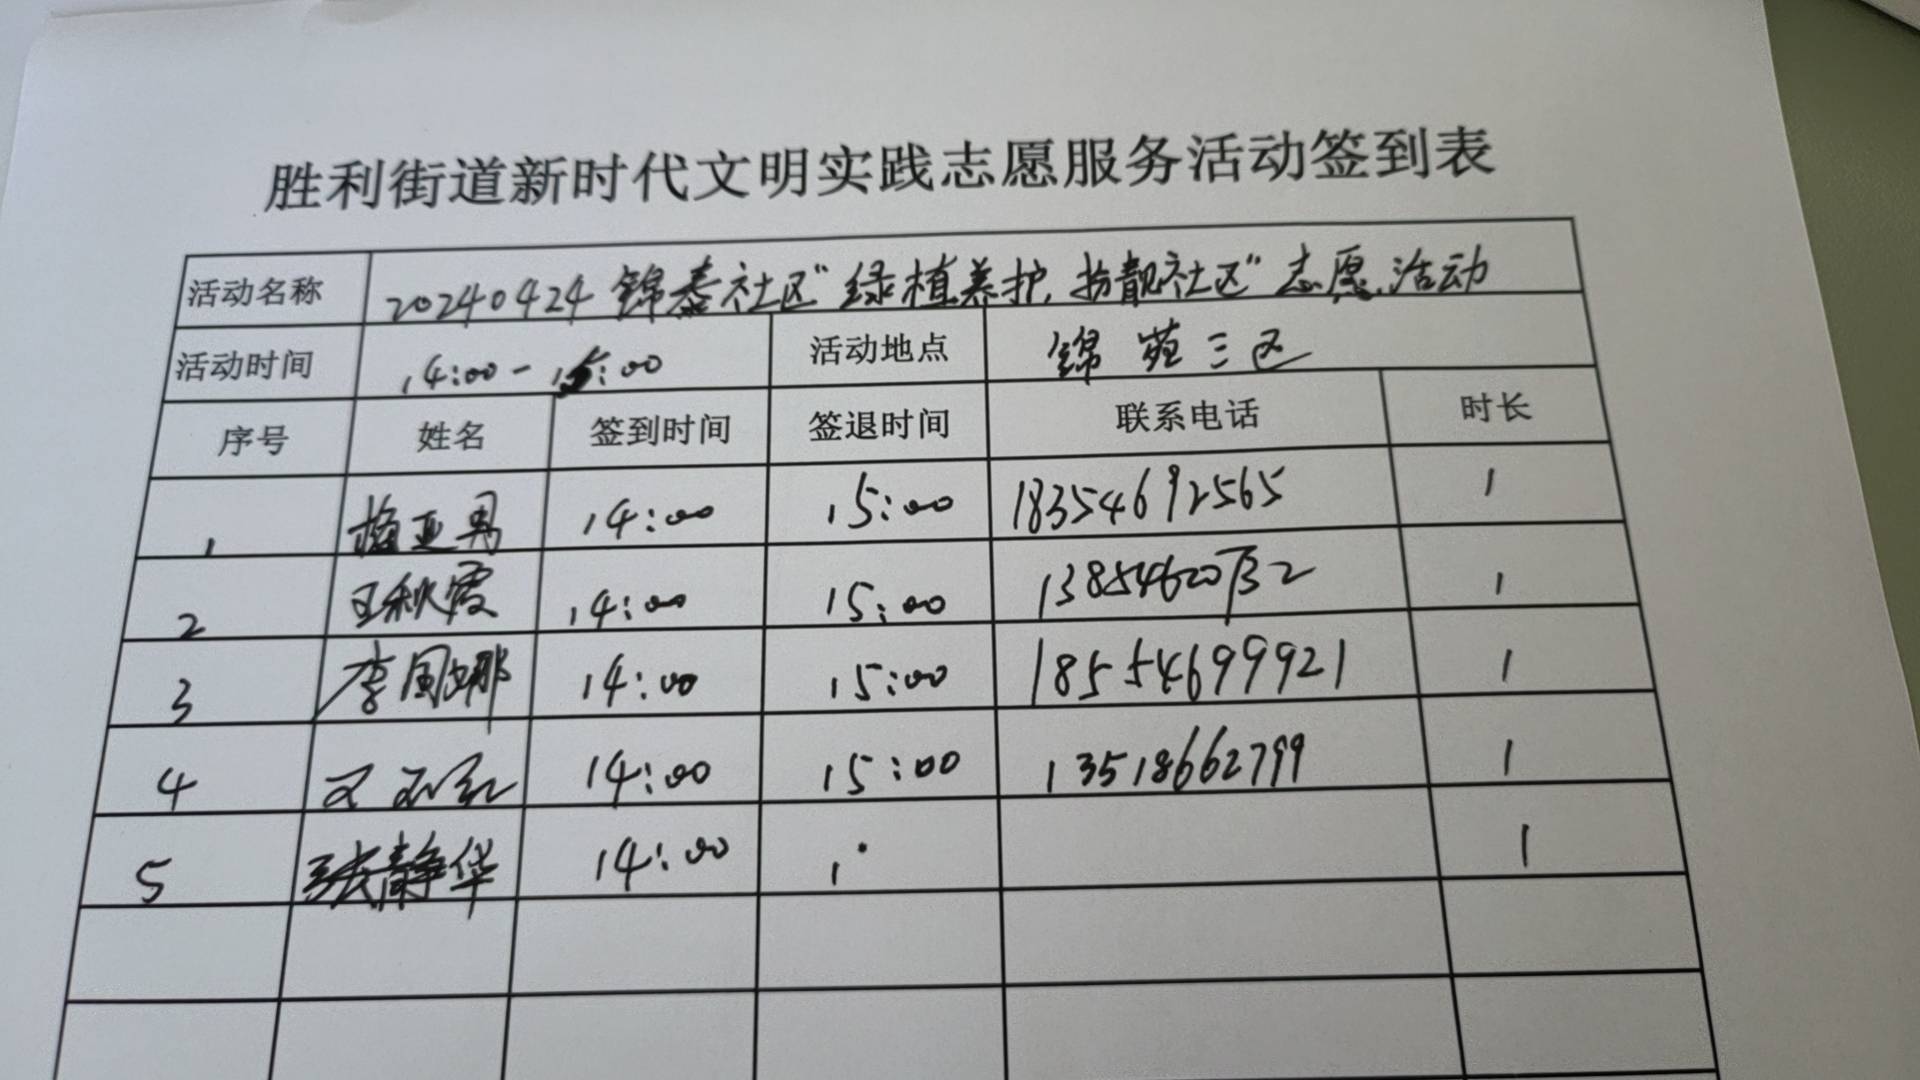 胜利街道新时代文明实践志愿服务活动签到表
活动名称 20240424锦泰社区“绿植养护,扮靓社区”志愿活动
活动时间 14:00-15:00 活动地点 锦苑三区
序号 姓名 签到时间 签退时间 联系电话 时长
1 梅亚男 14:00 15:00 18354692565 1
2 王秋霞 14:00 15:00 1
3 李国娜 14:00 15:00 18554699921 1
4 14:00 15:00 13518662799 1
5 张静华 14:00 1